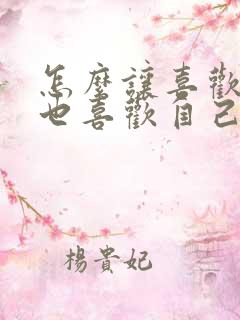 怎麼讓喜歡
也喜歡自己
楊貴妃